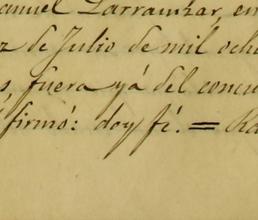 anuel Larrauzar, en
z de Julio de mil ocho
s, fuera yá del concu
firmó: doy fé. = Ra